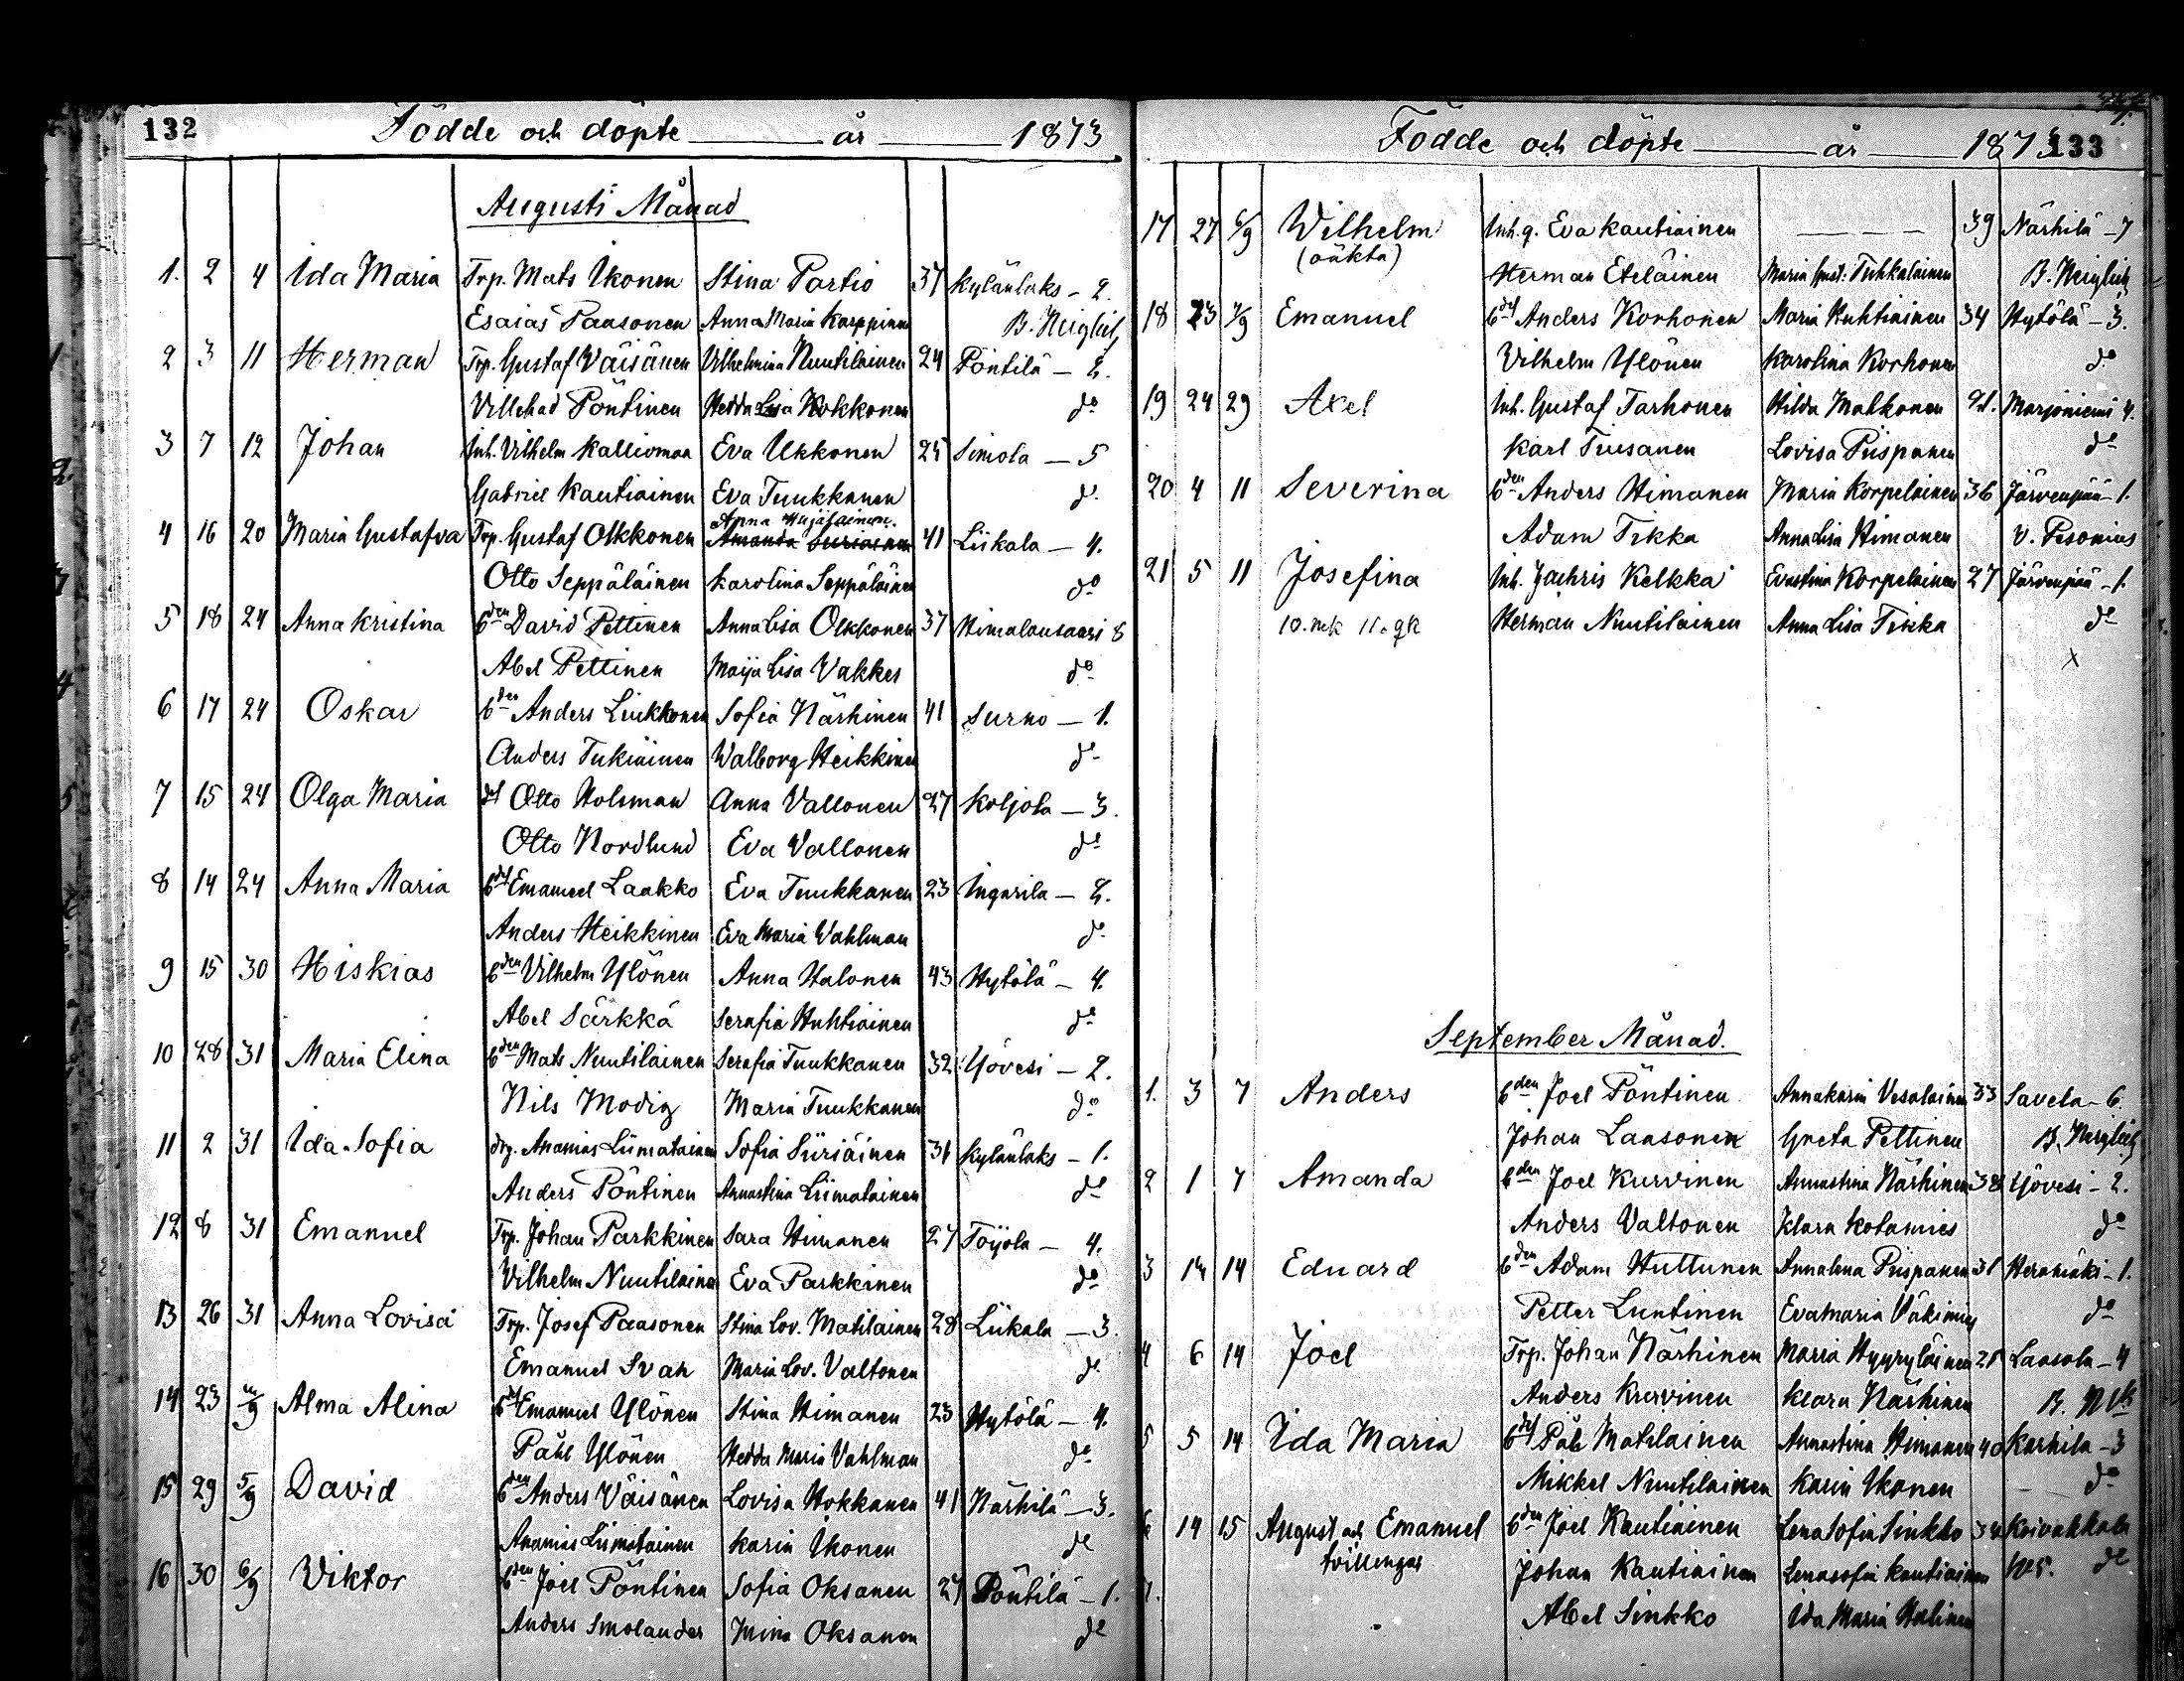 132 Födde och döpte år 1873
Augusti Månad
1. 2 4 Ida Maria Trp. Mats Ikonen Stina Partio 37 Kylänlaks - 2.
Esaias Paasonen Anna Maria Karppinen B. Neiglick
2 3 11 Herman Trp. Gustaf Väisänen Vilhelmina Nuutilainen 24 Pöntilä - 2.
Villehad Pöntinen Hedda Lisa Kokkonen do
3 7 12 Johan Inh. Vilhelm Kalliomaa Eva Ukkonen 25 Simola - 5
Gabriel Kautiainen Eva Tuukkanen do
Anna
4 16 20 Maria Gustafva Trp. Gustaf Olkkonen Amanda Suriainen 41 Liikala - 4.
Otto Seppäläinen Karolina Seppäläinen do
5 18 24 Anna Kristina bden David Pettinen Anna Lisa Olkkonen 37 Himalansaari 8
Abel Pettinen Maija Lisa Vakkes do
6 17 24 Oskar bden Anders Liukkonen Sofia Närhinen 41 Surno - 1.
Anders Tukiainen Walborg Heikkinen do
7 15 24 Olga Maria Otto Holsman Anna Vallonen 27 Koljola - 3.
Otto Nordlund Eva Vallonen do
8 14 24 Anna Maria Emanuel Laakko Eva Tuukkanen 23 Ingarila - 2.
Anders Heikkinen Eva Maria Vahlman do
9 15 30 Hiskias bden Vilhelm Ylönen Anna Halonen 43 Hytölä - 4.
Abel Särkkä Serafia Huhtiainen do
10 28 31 Maria Elina bden Mats Nuutilainen Serafia Tuukkanen 32 Yövesi - 2.
Nils Modig Maria Tuukkanen do
11 2 31 Ida Sofia Ananias Liimatainen Sofia Siiriäinen 31 Kylänlaks - 1.
Anders Pöntinen Annastina Liimatainen do
12 8 31 Emanuel Trp. Johan Parkkinen Sara Himanen 27 Toijola - 4.
Vilhelm Nuutilainen Eva Parkkinen do
13 26 31 Anna Lovisa Trp. Josef Paasonen Stina Lov. Matilainen 28 Liikala - 3.
Emanuel Svan Maria Lov. Valtonen do
14 23 Alma Alina Emanuel Ylönen Stina Himanen 23 Hytölä - 4.
Påhl Ylönen Hedda Maria Vahlman do
15 29 5/9 David bden Anders Väisänen Lovisa Hokkanen 41 Närhilä - 3.
Ananias Liimatainen Karin Ikonen do
16 30 6/9 Viktor bden Joel Pöntinen Sofia Oksanen 27 Pöntilä - 1.
Anders Smolander Mina Oksanen do
Födde och döpte år 1873 133
17 27 6/9 Wilhelm Inh.q. Eva Kautiainen 39 Närhilä - 7
(oäkta) Herman Eteläinen Maria Gust. Tuhkalainen B. Neiglick
18 23 7/9 Emanuel Anders Korhonen Maria Kuhtiainen 34 Hytölä - 3.
Vilhelm Ylönen Karolina Korhonen do
19 24 29 Axel Inh. Gustaf Tarhonen Hilda Malkonen 21. Marjoniemi 4.
Karl Tiusanen Lovisa Piispanen do
20 4 11 Severina bden Anders Himanen Maria Korpelainen 36 Järvenpää - 1.
Adam Tikka Anna Lisa Himanen V. Pesonius
21 5 11 Josefina Inh. Zachris Kelkka Evastina Korpelainen 27 Järvenpää - 1.
10. mk 11. gk Herman Nuutilainen Anna Lisa Tikka do
x
September Månad.
1. 3 7 Anders bden Joel Pöntinen Annakarin Vesalainen 33 Savela - 6.
Johan Laasonen Greta Pettinen B. Neiglick
2 1 7 Amanda bden Joel Kurvinen Annastina Närhinen 38 Yövesi - 2.
Anders Valtonen Klara Kotamies do
3 14 Eduard bden Adam Huttunen Annalena Piispanen 31 - 1.
Petter Luntinen Evamaria Väkimies do
4 6 14 Joel Trp. Johan Närhinen Maria Hyyryläinen 28 Laasola - 4
Anders Kurvinen Klara Närhinen B. Nck
5 5 14 Ida Maria Påhl Matilainen Annastina Himanen 40 Karhila - 3
Mikkel Nuutilainen Karin Ikonen do
6 14 15 August och Emanuel bden Joel Kautiainen Lena Sofia Sinkko 34 Koivakkala
tvillingar Johan Kautiainen Lenasofia Kautiainen No 5. do
7. Abel Sinkko Ida Maria Halinen